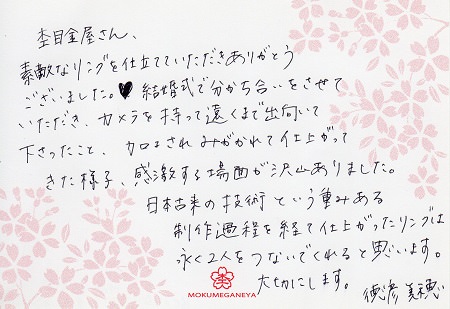 杢目金屋さん、
素敵なリングを仕立てていただきありがとう
ございました。♥ 結婚式で分かち合いをさせて
いただき、カメラを持って遠くまで出向いて
下さったこと、加工されみがかれて仕上がって
きた様子、感激する場面が沢山ありました。
日本古来の技術という重みある
制作過程を経て仕上がったリングは
永く2人をつないでくれると思います。
大切にします。
MOKUMEGANEYA